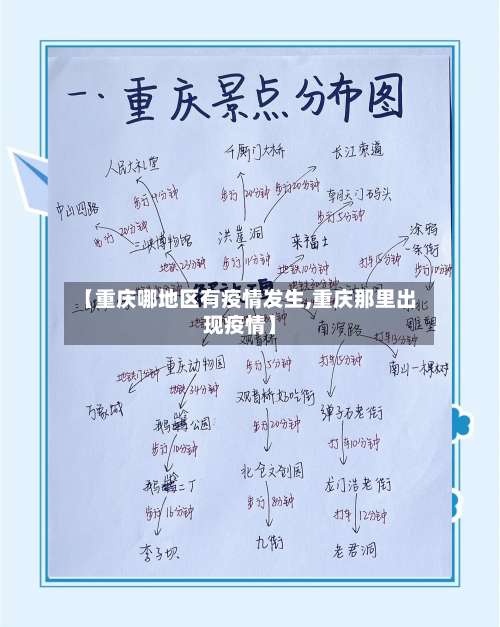 一·重庆景点分布图
千厮门大桥
长江索道
人民大礼堂
步行20分钟
步行20分钟
朝天门码头
中山四路
步行5分钟
步行20分钟
三峡博物馆
洪崖洞
来福士
涂鸦
一条街
地铁23分钟
步行11分钟
地铁10分钟
步行10分钟
【重庆哪地区有疫情发生,重庆那里出
现疫情】
南滨路
雕塑
观音桥
打车13分钟
重庆动物园
步行5分钟
打车15分钟
南山一棵树
地铁34分钟
万象城
观音桥好吃街
弹子石老街
公园
步行20分钟
步行10分钟
打车10分钟
北仓文创园
龙门浩老街
二厂
步行8分钟
步行16分钟
打车12分钟
九街
李子坝
老君洞